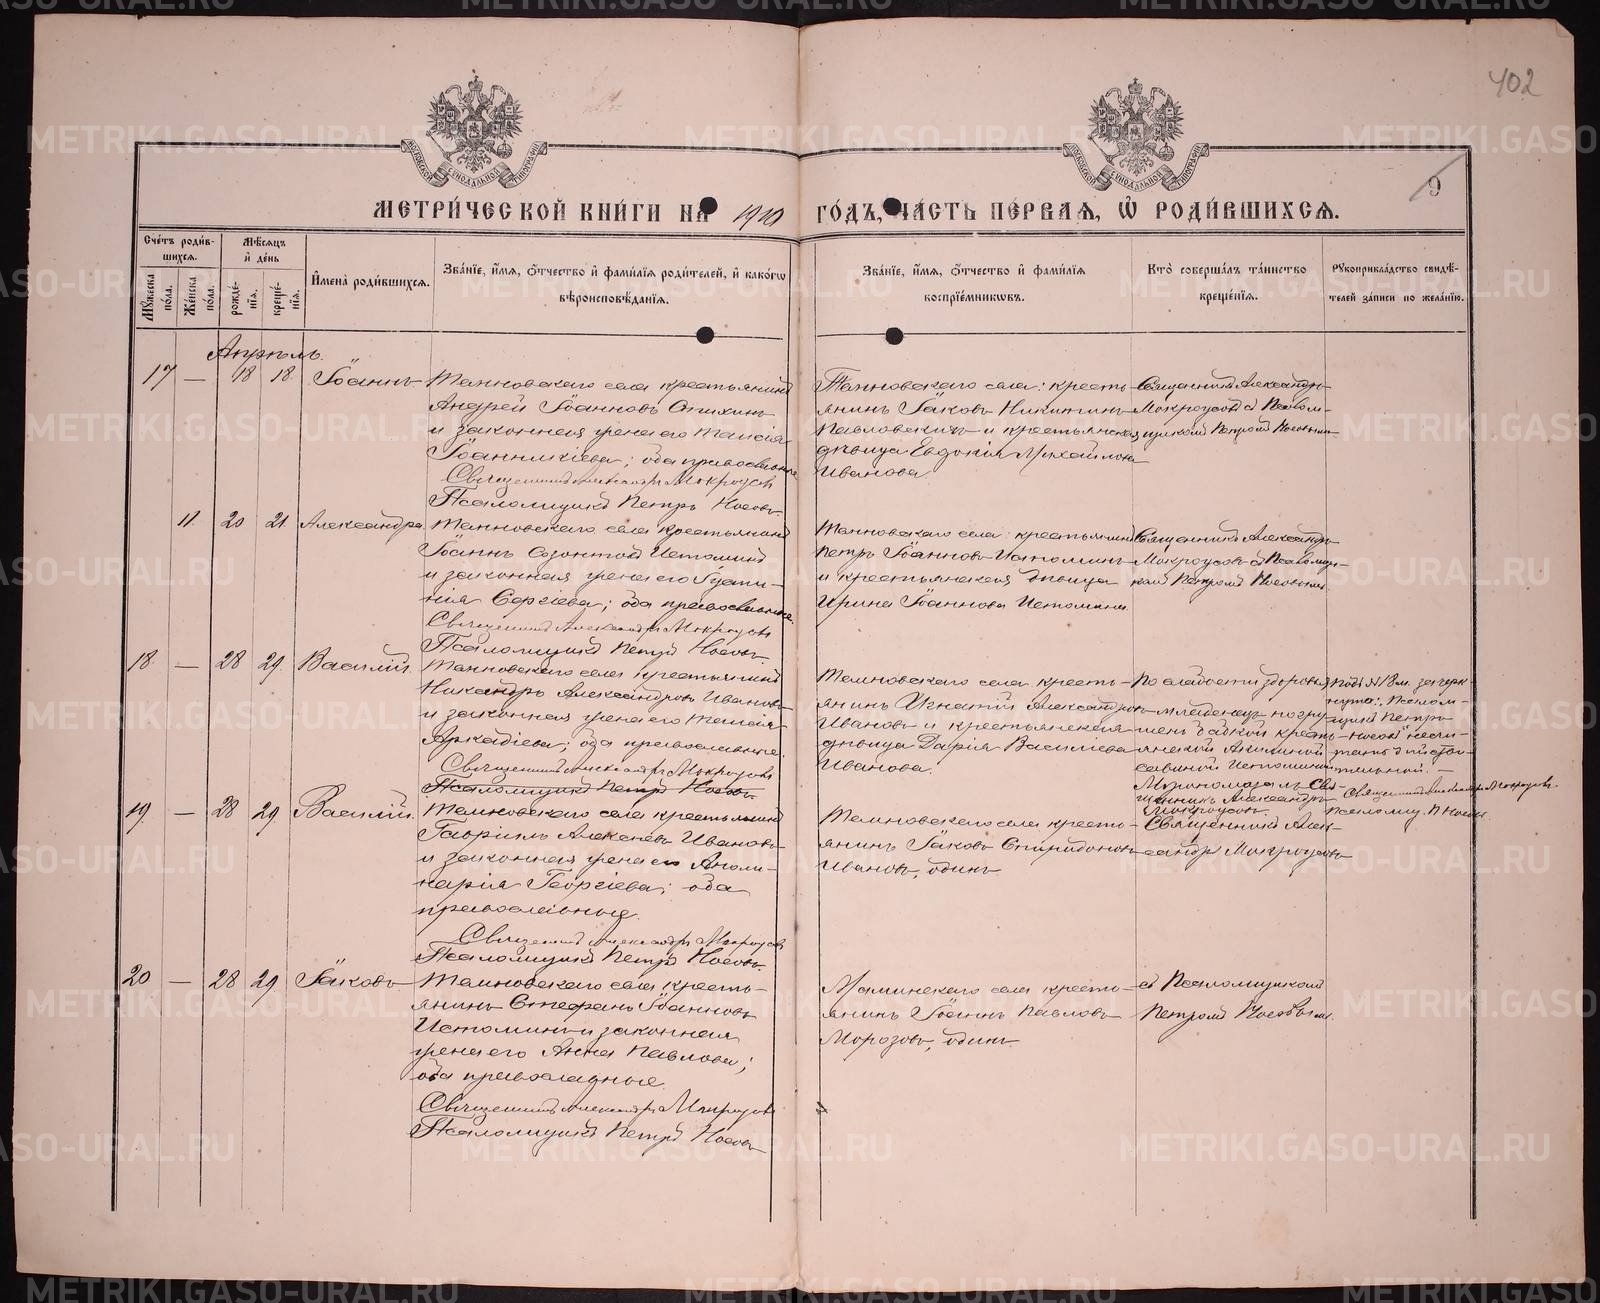 402
9
МОСКОВСКОЙ СѴНОДАЛЬНОЙ ТИПОГРАФІИ
МОСКОВСКОЙ СѴНОДАЛЬНОЙ ТИПОГРАФІИ
МЕТРИ́ЧЕСКОЙ КНИ́ГИ НА 1910 ГО́ДЪ, ЧА́СТЬ ПЕ́РВАЯ, Ѡ РОДИ́ВШИХСЯ.
Сче́тъ роди́вшихся.
Му́жеска по́ла.
Же́нска по́ла.
Мѣ́сяцъ и́ де́нь
рожде́нїя.
креще́нїя.
И҆мена̀ роди́вшихся.
Зва́нїе, и҆́мя, ѻ҆́тчество и҆ фами́лїя роди́телей, и҆ како́гѡ
вѣроисповѣ́данїя.
Зва́нїе, и҆́мя, ѻ҆́тчество и҆ фами́лїя
воспрїе́мникѡвъ.
Кто̀ соверша́лъ та́инство
креще́нїя.
Рꙋкоприкла́дство свидѣ́-
телей за́писи по жела́нїю.
Апрѣль.
17 — 18 18 Іоаннъ
крестьянинъ
Андрей Іоанновъ
и законная жена его Таисія
Іоанникіева; оба православные
Священникъ Александръ Мокроусовъ
Псаломщикъ Петръ Носовъ.
села: кресть-
янинъ Іаковъ Никитинъ
Павловскихъ и крестьянская
дѣвица Евдокія Михайлова
Иванова.
Священникъ Александръ
Мокроусовъ съ Псалом-
щикомъ Петромъ Носовымъ.
11. 20 21 Александра.
села крестьянинъ
Іоаннъ Созонтовъ Истоминъ
и законная жена его
Сергіева; оба православные.
Священникъ Александръ Мокроусовъ
Псаломщикъ Петръ Носовъ.
села: крестьянинъ
Петръ Іоанновъ Истоминъ
и крестьянская дѣвица
Ирина Іоаннова Истомина.
Священникъ Александръ
Мокроусовъ съ Псаломщи-
комъ Петромъ Носовымъ.
18. — 28 29. Василій.
села крестьянинъ
Никандръ Александровъ Ивановъ
и законная жена его Таисія
Аркадіева; оба православные.
Священникъ Александръ Мокроусовъ
Псаломщикъ Петръ Носовъ.
села кресть-
янинъ Игнатій Александровъ
Ивановъ и крестьянская
дѣвица Дарія Васильева
Иванова.
По слабости здоровья
младенецъ погру-
женъ бабкой кресть-
янской Акилиной
Савиной Истоминой
Мѵропомазалъ Свя-
щенникъ Александръ
Мокроусовъ.
Подъ №18м. зачерк-
нутое: „Псалом-
щикъ Петръ
Носовъ"
Священникъ Александръ Мокроусовъ.
Псаломщ. П Носовъ.
19. — 28 29 Василій.
села крестьянинъ
Гавріилъ Алексѣевъ Ивановъ
и законная жена его Аполи-
нарія Георгіева; оба
православные.
Священникъ Александръ Мокроусовъ
Псаломщикъ Петръ Носовъ.
села кресть-
янинъ Іаковъ Спиридоновъ
Ивановъ, одинъ
Священникъ Алек-
сандръ Мокроусовъ
20 — 28 29 Іаковъ
села кресть-
янинъ Стефанъ Іоанновъ
Истоминъ и законная
жена его Анна Павлова;
оба православные.
Священникъ Александръ Мокроусовъ
Псаломщикъ Петръ Носовъ
Маминскаго села кресть-
янинъ Іоаннъ Павловъ
Морозовъ, одинъ.
съ Псаломщикомъ
Петромъ Носовымъ.
METRIKI.GASO-URAL.RU